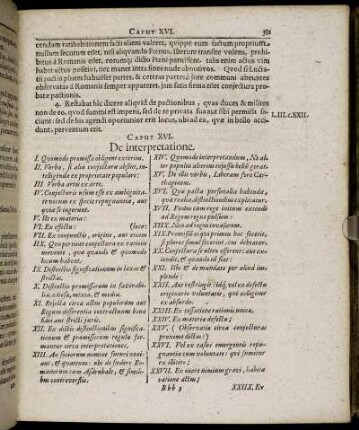 CAPUT XVI.
cendam ratihabitionem facti alieni valeret, quippe cum factum proprium
nullum secutum esset, nisi aliquando Poenus, Iberum transire volens, prohi-
bitus à Romanis esset, eorumque dicto Poeni paruissent. talis enim actus vim
habet actus positivi, nec manet intra fines nudè abnutivos. Quod si Lucta-
tii pactio plures habuisset partes, & ceteras partes à jure communi abeuntes
observatas à Romanis semper appareret, jam satis firma esset conjectura pro-
batae pactionis.
4. Restabat hîc dicere aliquid de pactionibus, quas duces & milites
non de eo, quod summi est imperii, sed de re privata
faciunt: sed de his agendi opportunior erit locus, ubi ad ea, quae in bello acci-
dunt, perventum erit.
L. III. c. XXII.
CAPUT XVI.
De interpretatione.
I. Quomodo promissa obligent exteriùs.
II. Verba, si alia conjectura absint, in-
telligenda ex proprietate populari:
III. Verba artis ex arte.
IV. Conjecturis usum esse ex ambiguita-
te
V. Ut ex materia:
VI. Ex effectu:
VII. Ex conjunctis, origine, aut etiam
IIX. Quo pertinet conjectura ex ratione
movente, quae quando & quomodo
locum habeat;
IX. Distinctio significationum in laxas &
strictas.
X. Distinctio promissorum in favorabi-
lia, odiosa, mixta, & media.
XI. Rejecta circa actus populorum aut
Regum differentia contractuum bonae
fidei aut stricti juris.
XII. Ex dictis distinctionibus significati-
onum & promissorum regula forman-
tur circa interpretationes.
XIII. An sociorum nomine futuri veni-
ant, & quatenus: ubi de foedere Ro-
manorum cum Asdrubale, & simili-
bus controversiis.
XIV. Quomodo interpretandum, Ne al-
ter populus alterius injussu bella gerat.
XV. De illis verbis, Liberam fore Car-
thaginem.
XVI. Quae pacta personalia habenda,
quae realia, distinctionibus explicatur.
XVII. Foedus cum rege initum extendi
ad Regem regno pulsum:
XIIX. Non ad regni invasorem.
XIX. Promissa
XX. Conjectura
XXI. Ubi & de mandato per aliud im-
plendo:
XXII. Aut restringit id, vel ex defectu
originario voluntatis, qui colligitur
ex absurdo.
XXIII. Ex cessatione rationis unicae.
XXIV. Ex materia defectu:
XXV. (Observatio circa conjecturas
proxime dictas:)
XXVI. Vel ex casus emergentis repu-
gnantia cum voluntate: qui sumitur
ex illicito;
XXVII. Ex onere nimium gravi, habita
ratione actus;
Bbb 3
XXIIX. Ex